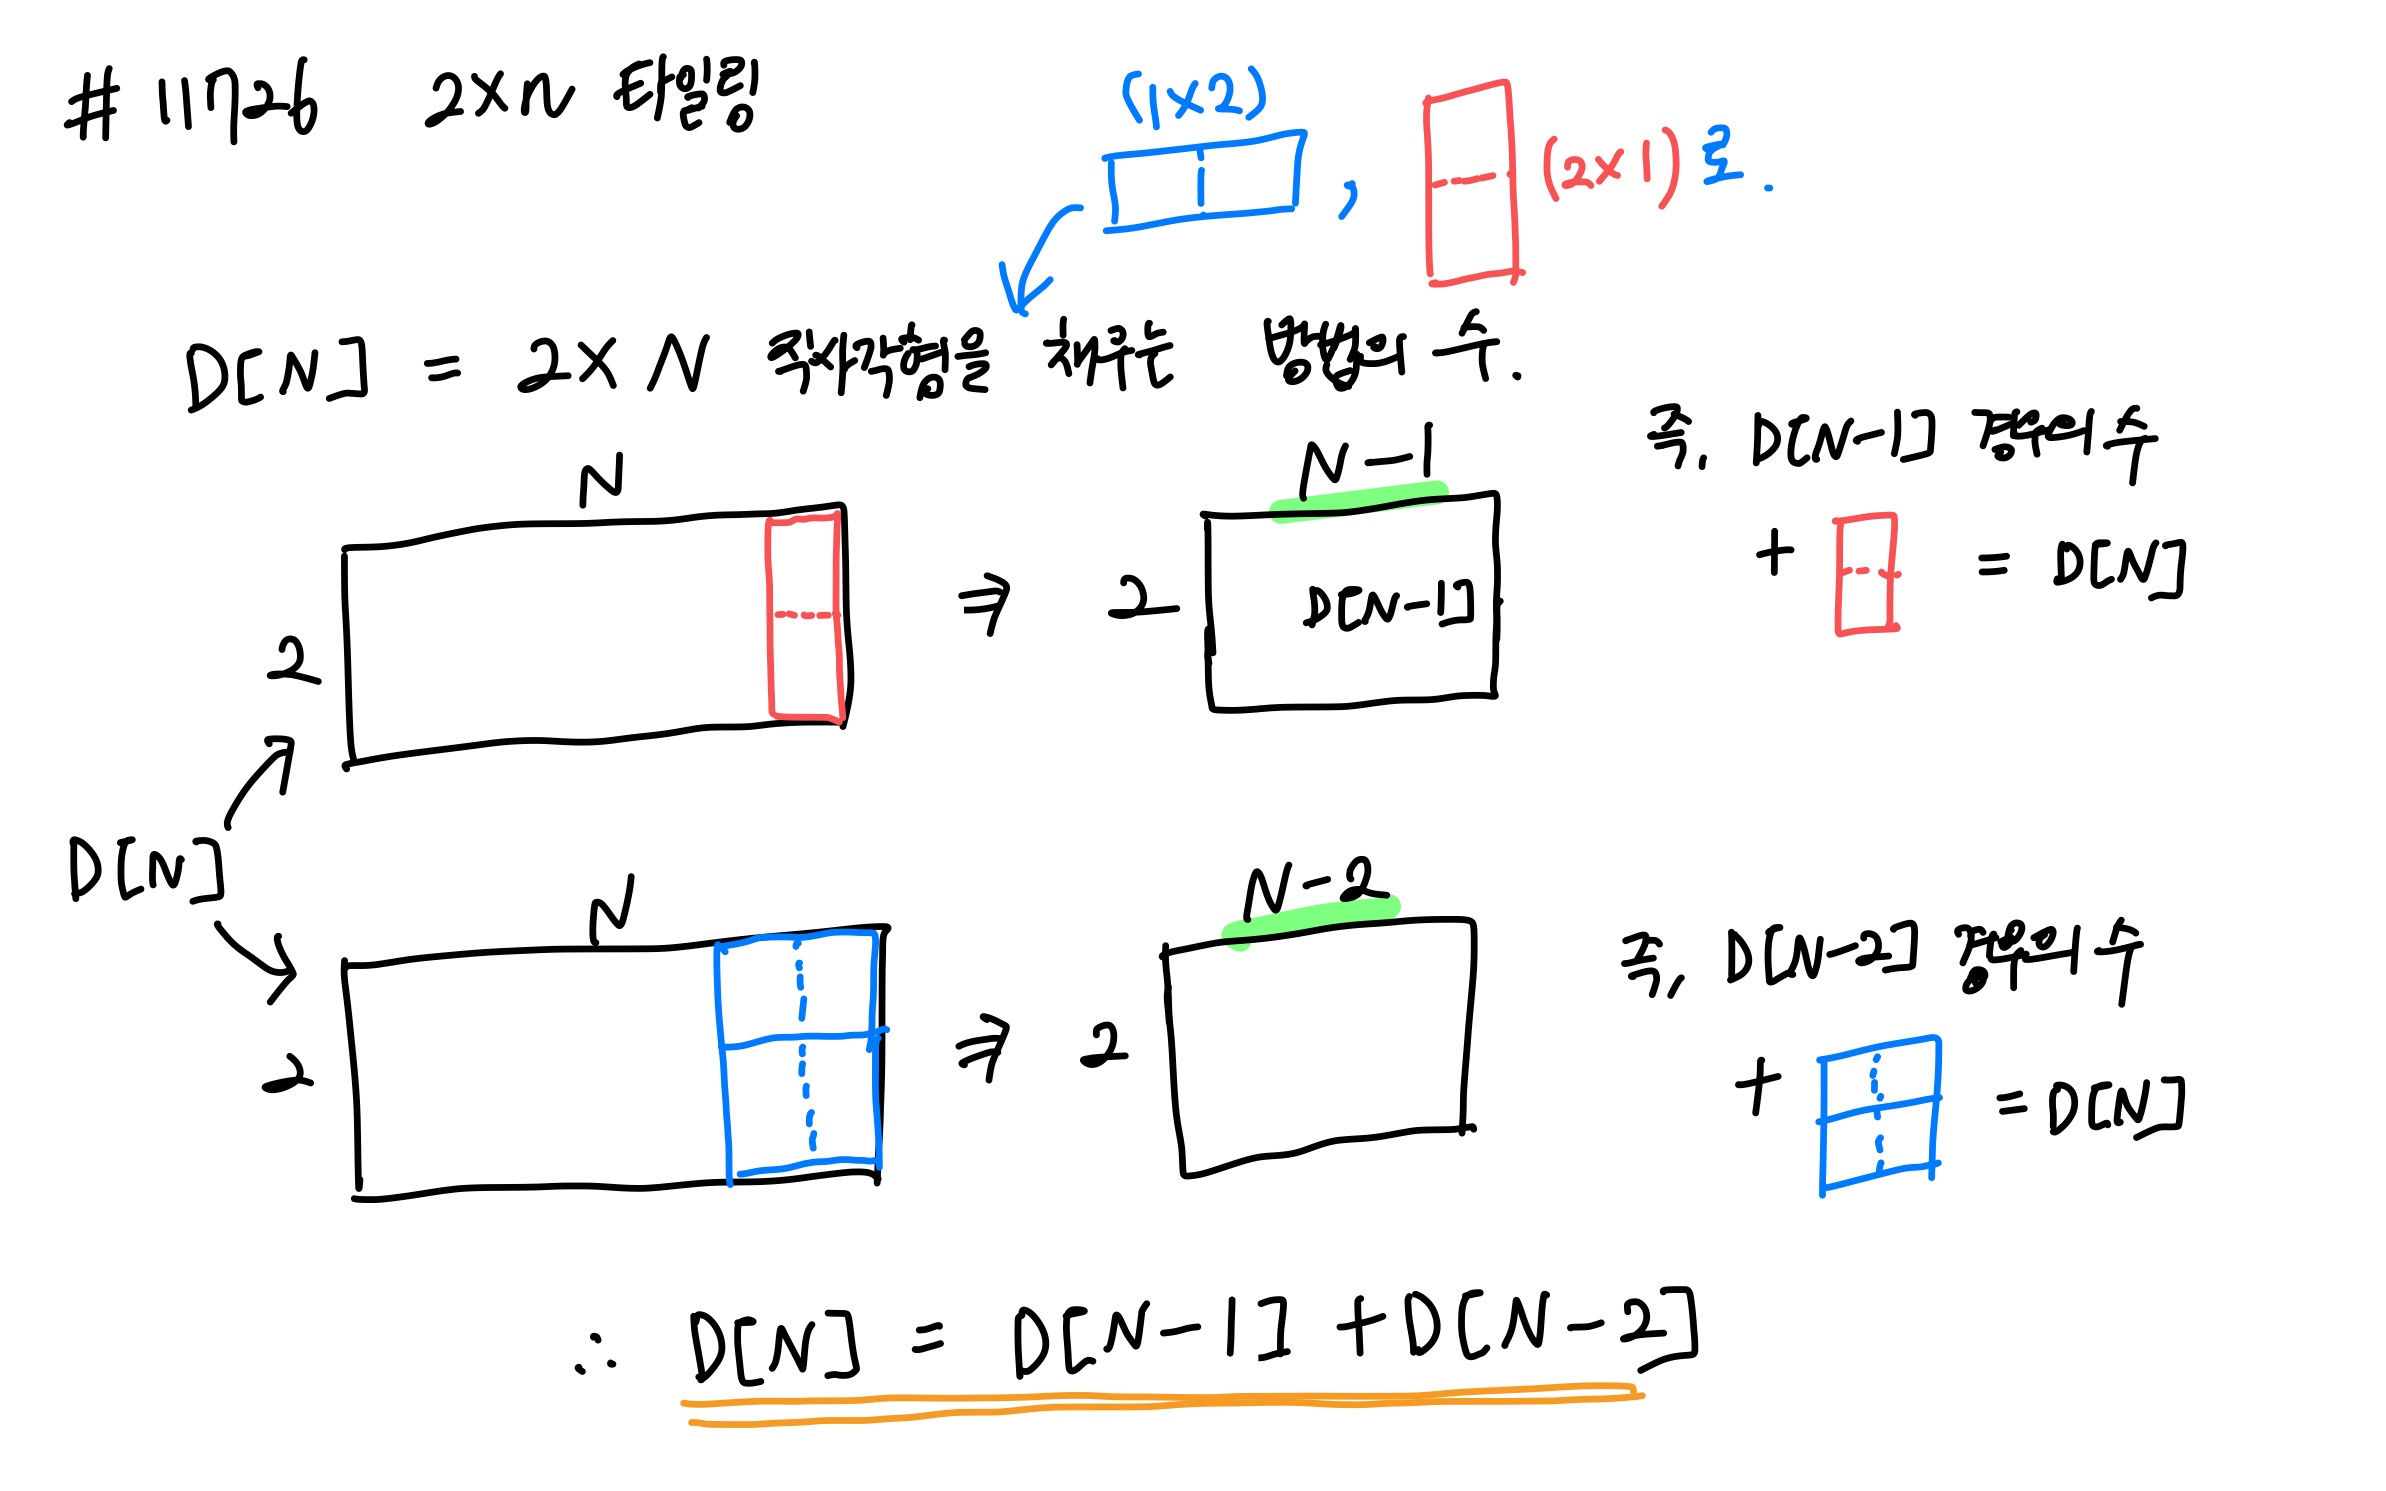 #11726 2×n 타일링
(1×2) , (2×1)로.
D[N] = 2×N 직사각형을 채우는 방법의 수.
N
2
⇒
N-1
2
D[N-1]
즉, D[N-1] 경우의 수
+ = D[N]
D[N]
N
2
⇒
N-2
2
즉, D[N-2] 경우의 수
+ = D[N]
∴ D[N] = D[N-1] + D[N-2]